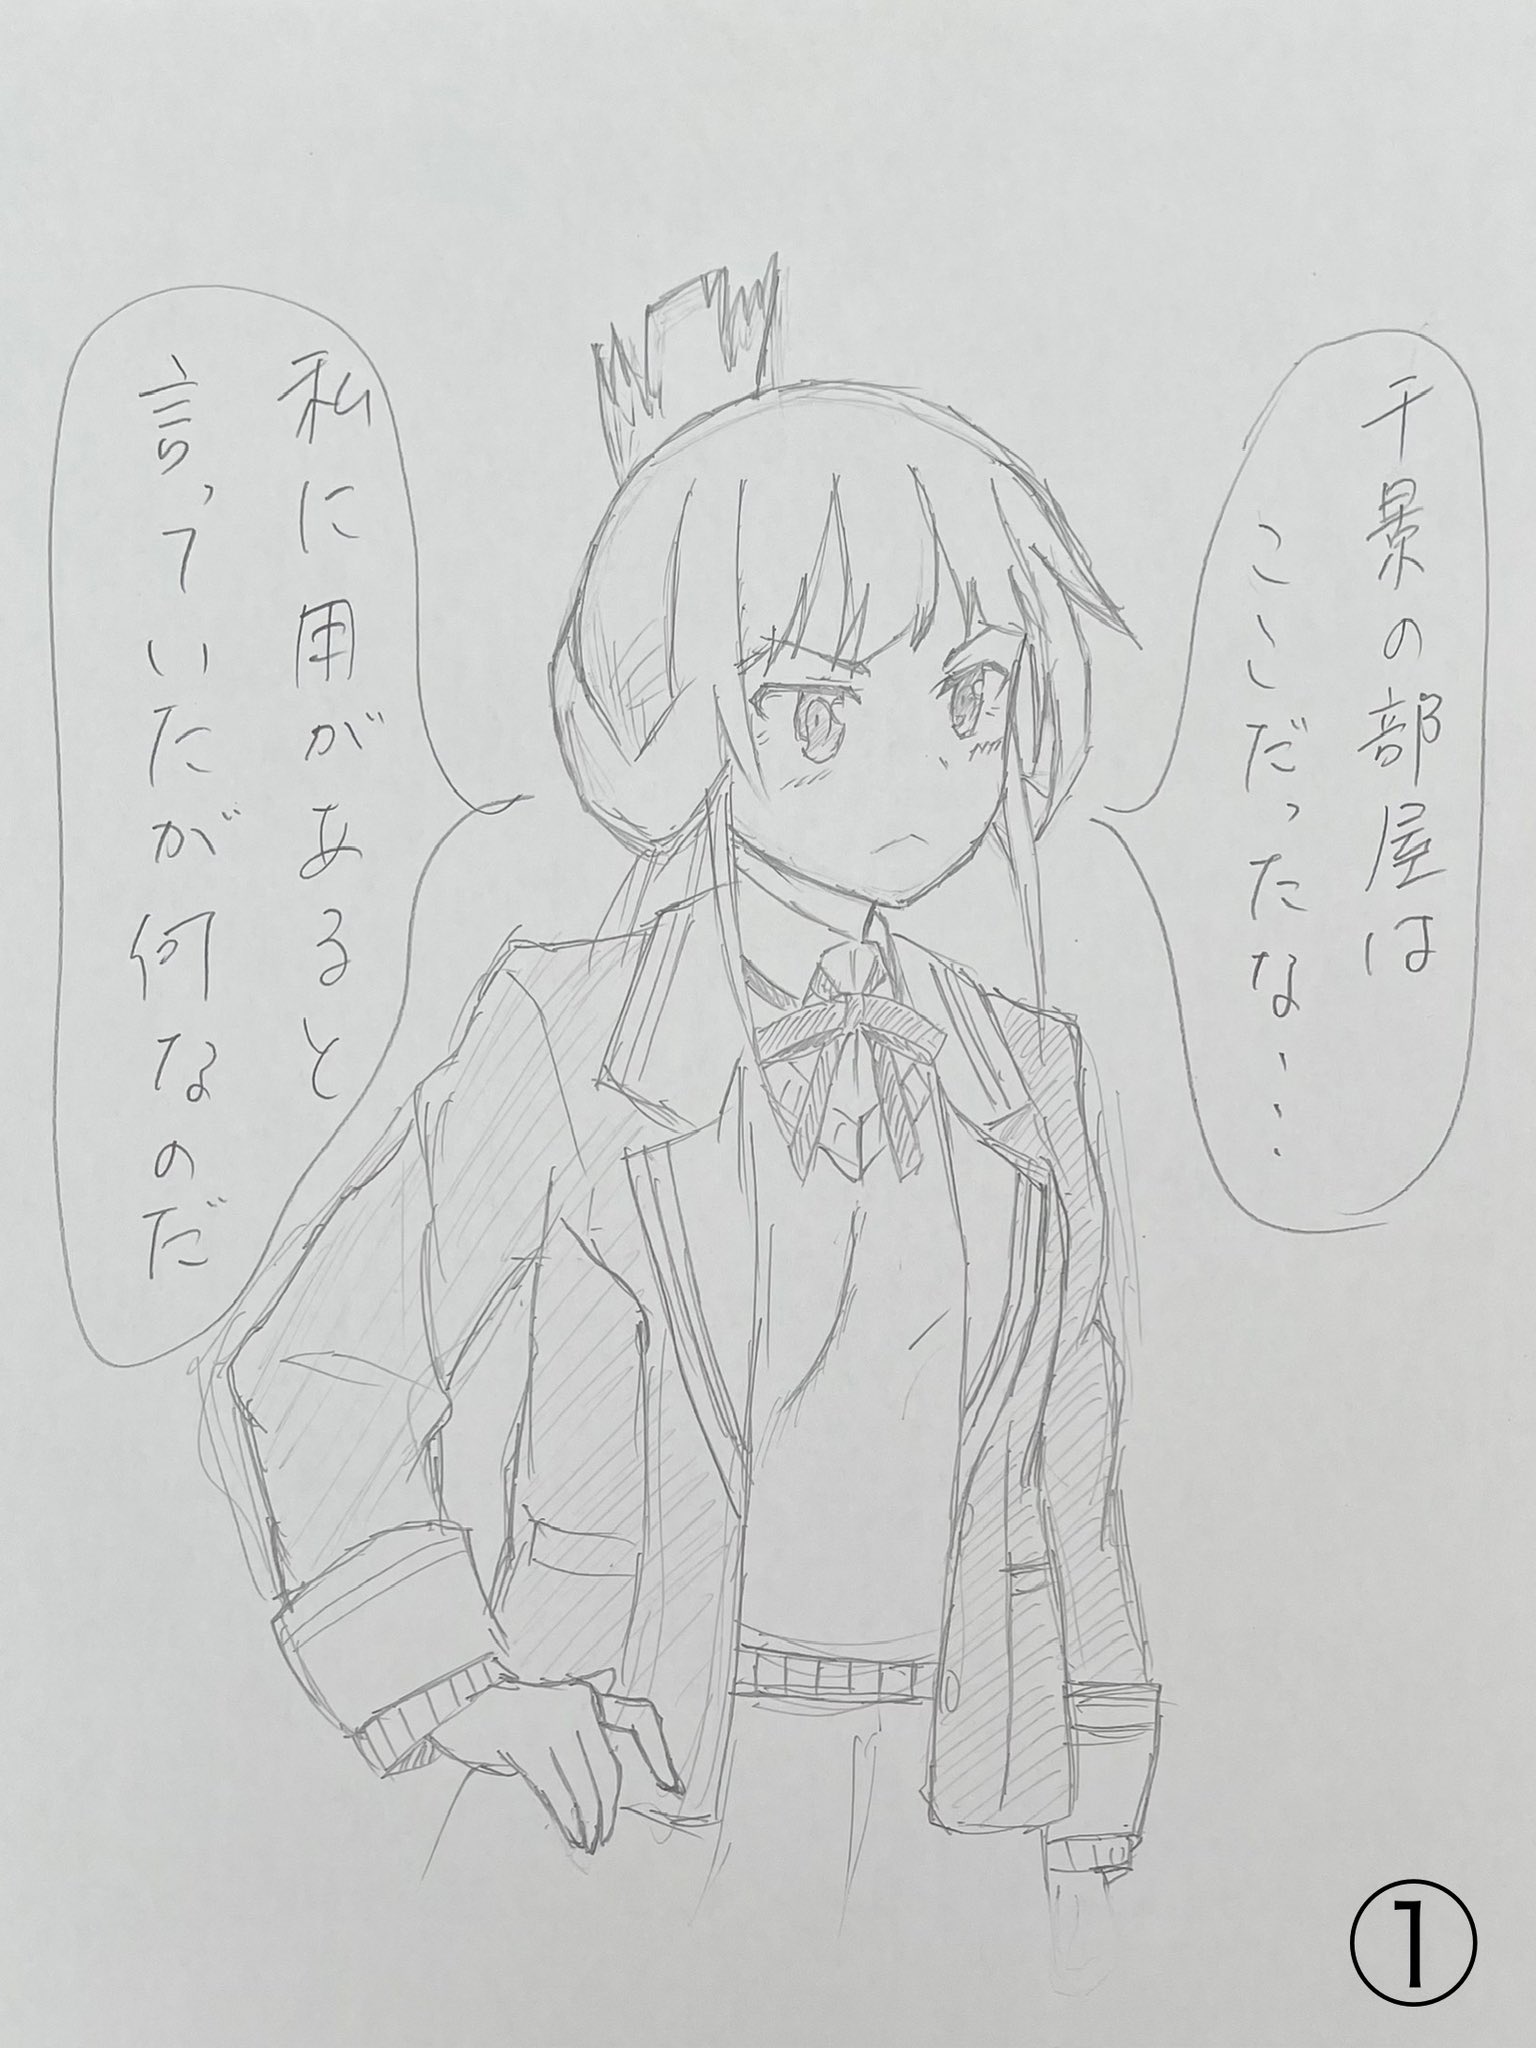 千景の部屋は
ここだったな・・・
私に用があると
言っていたが何なのだ
①